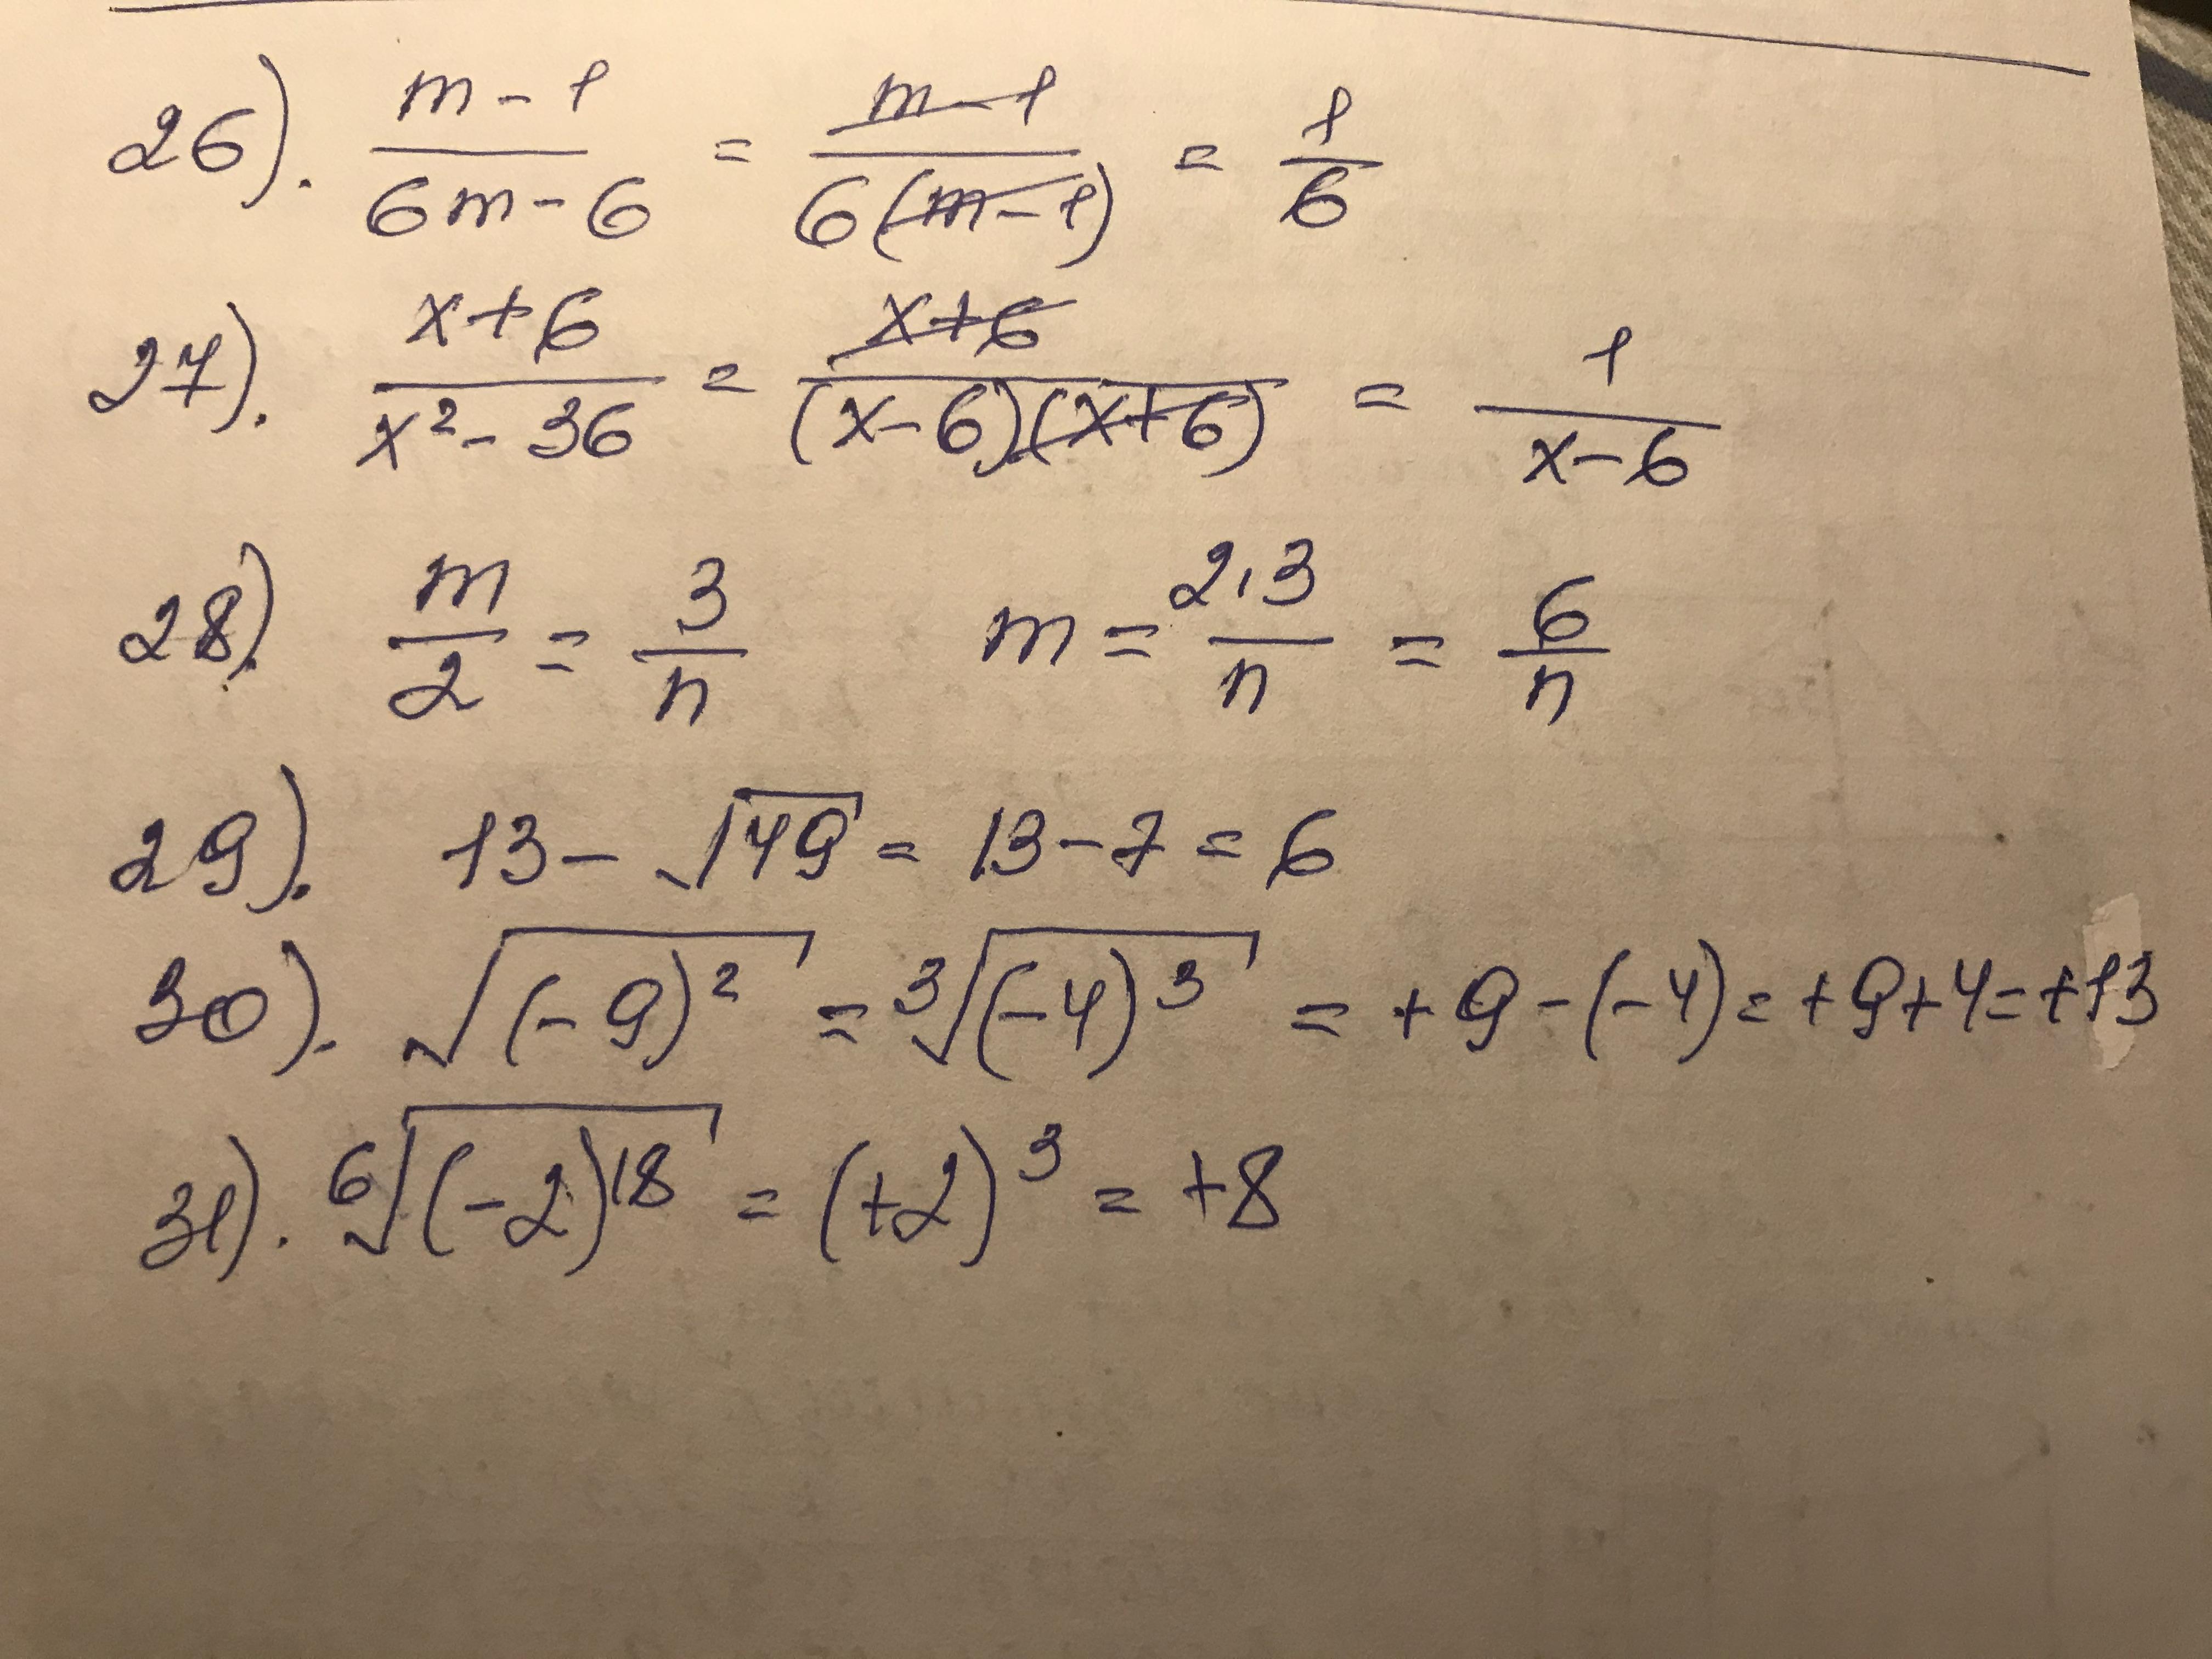 26). (m-1)/(6m-6) = (m-1)/(6(m-1)) = 1/6
27). (x+6)/(x²-36) = (x+6)/((x-6)(x+6)) = 1/(x-6)
28). m/2 = 3/n m = (2·3)/n = 6/n
29). 13-√49 = 13-7 = 6
30). √(-9)² = ³√(-4)³ = +9-(-4) = +9+4 = +13
31). ⁶√(-2)¹⁸ = (+2)³ = +8